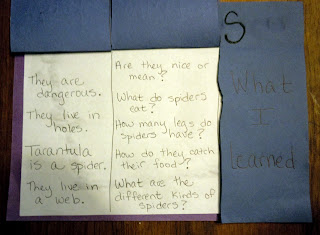 They are
dangerous.
They live in
holes.
Tarantula
is a spider.
They live in
a web.
Are they nice or
mean?
What do spiders
eat?
How many legs do
spiders have?
How do they catch
their food?
What are the
different kinds of
spiders?
S
What
I
learned